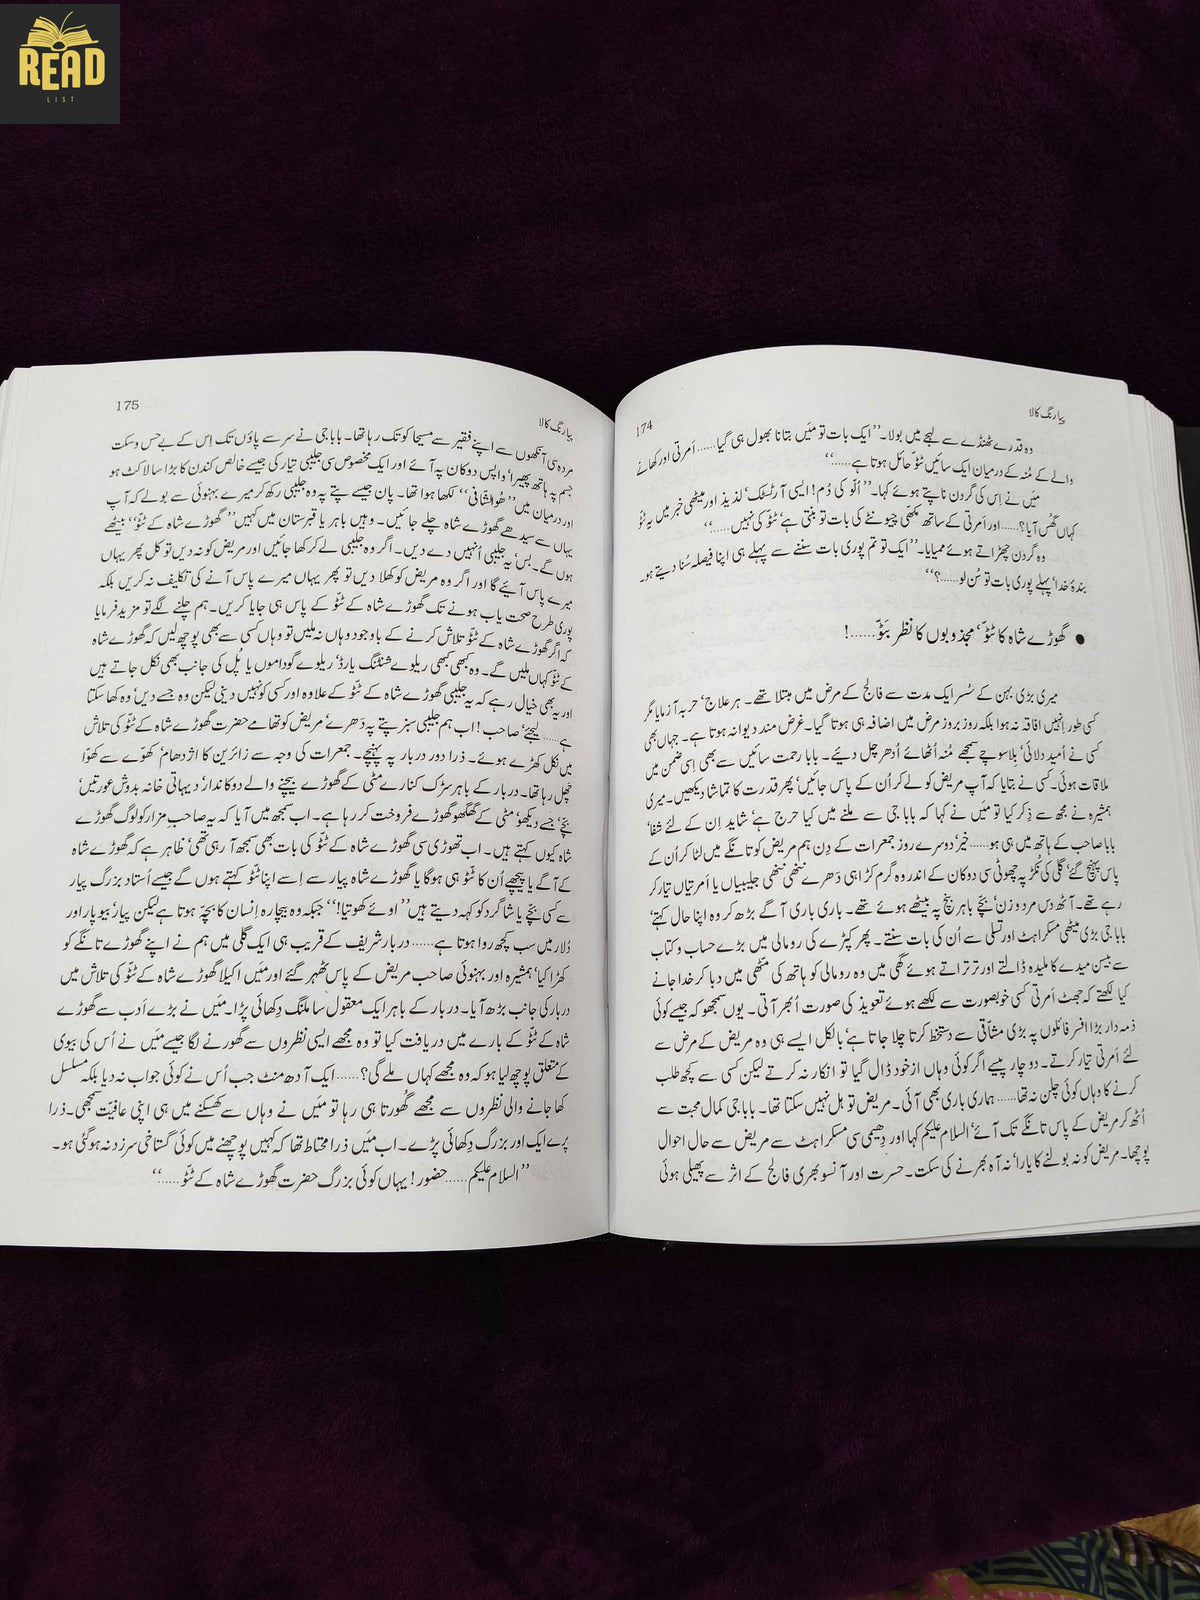 READ
LIST
پیا رنگ کالا
174
وہ قدرے ٹھنڈے سے لہجے میں بولا۔ ’’ایک بات تو مَیں بتانا بھول ہی گیا...... اَمرتی اور کھانے
والے کے مُنہ کے درمیان ایک سائیں ٹٹو حائل ہوتا ہے......‘‘
مَیں نے اِس کی گردن ناپتے ہوئے کہا۔ ’’اُلّو کی دُم! ایسی آرٹسٹک‘ لذیذ اور میٹھی خبر میں یہ ٹٹو
کہاں گھُس آیا؟...... اور اَمرتی کے ساتھ مکھّی چیونٹے کی بات تو بنتی ہے‘ ٹٹو کی نہیں......‘‘
وہ گردن چھڑاتے ہوئے ممیایا۔ ’’ایک تو تم پوری بات سننے سے پہلے ہی اپنا فیصلہ سُنا دیتے ہو۔
بندۂ خدا‘ پہلے پوری بات تو سُن لو......؟‘‘
● گھوڑے شاہ کا ٹٹو‘ مجذوبوں کا نظر بٹّو......!
میری بڑی بہن کے سُسر ایک مدت سے فالج کے مرض میں مبتلا تھے۔ ہر علاج‘ حربہ آزمایا مگر
کسی طور اُنہیں افاقہ نہ ہوا بلکہ روز بروز مرض میں اضافہ ہی ہوتا گیا۔ غرض مند دیوانہ ہوتا ہے۔ جہاں بھی
کسی نے اُمید دلائی‘ بلا سوچے سمجھے مُنہ اُٹھائے اُدھر چل دیئے۔ بابا رحمت سائیں سے بھی اِسی ضمن میں
ملاقات ہوئی۔ کسی نے بتایا کہ آپ مریض کو لے کر اُن کے پاس جائیں‘ پھر قدرت کا تماشا دیکھیں۔ میری
ہمشیرہ نے مجھ سے ذِکر کیا تو مَیں نے کہا کہ بابا جی سے ملنے میں کیا حرج ہے‘ شاید اِن کے لئے شفا‘
بابا صاحب کے ہاتھ میں ہی ہو...... خیر‘ دوسرے روز جمعرات کے دِن ہم مریض کو تانگے میں لٹا کر اُن کے
پاس پہنچ گئے‘ گلی کی نکڑ پہ چھوٹی سی دوکان کے اندر وہ گرم کڑاہی دَھرے ننھی ننھی جلیبیاں یا اَمرتیاں تیار کر
رہے تھے۔ آٹھ دس مرد و زن‘ بچّے باہر بنچ پہ بیٹھے ہوئے تھے۔ باری باری آگے بڑھ کر وہ اپنا حال کہتے‘
بابا جی بڑی میٹھی مسکراہٹ اور تسلی سے اُن کی بات سنتے۔ پھر کپڑے کی رومالی میں بڑے حساب و کتاب
سے بیسن میدے کا ملیدہ ڈالتے اور ترتراتے ہوئے گھی میں وہ رومالی کو ہاتھ کی مٹھی میں دبا کر خدا جانے
کیا لکھتے کہ جھٹ اَمرتی کسی خوبصورت سے لکھے ہوئے تعویذ کی صورت اُبھر آتی۔ یوں سمجھو کہ جیسے کوئی
ذمہ دار بڑا افسر فائلوں پہ بڑی مشّاقی سے دستخط کرتا چلا جاتا ہے‘ بالکل ایسے ہی وہ مریض کے مرض سے
لئے اَمرتی تیار کرتے۔ دو چار پیسے اگر کوئی وہاں از خود ڈال گیا تو انکار نہ کرتے لیکن کسی سے کچھ طلب
کرنے کا وہاں کوئی چلن نہ تھا...... ہماری باری بھی آئی۔ مریض تو ہل نہیں سکتا تھا۔ بابا جی کمال محبت سے
اُٹھ کر مریض کے پاس تانگے تک آئے‘ السلام علیکم کہا اور دھیمی سی مسکراہٹ سے مریض سے حال احوال
پوچھا۔ مریض کو نہ بولنے کا یارا‘ نہ آہ بھرنے کی سکت۔ حسرت اور آنسو بھری فالج کے اثر سے پھیلی ہوئی
پیا رنگ کالا
175
مردہ سی آنکھوں سے اپنے فقیر سے مسیحا کو تک رہا تھا۔ بابا جی نے سر سے پاؤں تک اِس کے بے حس و سکت
جسم پہ ہاتھ پھیرا‘ واپس دوکان پہ آئے اور ایک مخصوص سی جلیبی تیار کی جیسے خالص کندن کا بڑا سا لاکٹ ہو
اور درمیان میں ’’ھُوالشّافی‘‘ لکھا ہوا تھا۔ پان جیسے پتے پہ وہ جلیبی رکھ کر میرے بہنوئی سے بولے کہ آپ
یہاں سے سیدھے گھوڑے شاہ چلے جائیں۔ وہیں باہر یا قبرستان میں کہیں ’’گھوڑے شاہ کے ٹٹو‘‘ بیٹھے
ہوں گے۔ بس‘ یہ جلیبی اُنہیں دے دیں۔ اگر وہ جلیبی لے کر کھا جائیں اور مریض کو نہ دیں تو کل پھر یہاں
میرے پاس آئیے گا اور اگر وہ مریض کو کھلا دیں تو پھر یہاں میرے پاس آنے کی تکلیف نہ کریں بلکہ
پوری طرح صحت یاب ہونے تک گھوڑے شاہ کے ٹٹو کے پاس ہی جایا کریں۔ ہم چلنے لگے تو مزید فرمایا
کہ اگر گھوڑے شاہ کے ٹٹو تلاش کرنے کے باوجود وہاں نہ ملیں تو وہاں کسی سے بھی پوچھ لیں کہ گھوڑے شاہ
کے ٹٹو کہاں ملیں گے۔ وہ کبھی کبھی ریلوے شنٹنگ یارڈ‘ ریلوے گوداموں یا پُل کی جانب بھی نکل جاتے ہیں
اور یہ بھی خیال رہے کہ یہ جلیبی گھوڑے شاہ کے ٹٹو کے علاوہ اور کسی کو نہیں دینی لیکن وہ جسے دیں‘ وہ کھا سکتا
ہے...... لیجئے‘ صاحب! اب ہم جلیبی سبز پتے پہ دَھرے‘ مریض کو تھامے حضرت گھوڑے شاہ کے ٹٹو کی تلاش
میں نکل کھڑے ہوئے۔ ذرا دور دربار پہ پہنچے۔ جمعرات کی وجہ سے زائرین کا اژدھام‘ کھوے سے کھوا
چھل رہا تھا۔ دربار کے باہر سڑک کنارے مٹی کے گھوڑے بیچنے والے دوکاندار‘ دیہاتی خانہ بدوش عورتیں‘
بچّے‘ جسے دیکھو‘ مٹی کے گھگھو گھوڑے فروخت کر رہا ہے۔ اب سمجھ میں آیا کہ یہ صاحبِ مزار کو لوگ گھوڑے
شاہ کیوں کہتے ہیں۔ اب تھوڑی سی گھوڑے شاہ کے ٹٹو کی بات بھی سمجھ آ رہی تھی‘ ظاہر ہے کہ گھوڑے شاہ
کے آگے یا پیچھے اُن کا ٹٹو ہی ہو گا یا گھوڑے شاہ پیار سے اِسے اپنا ٹٹو کہتے ہوں گے جیسے اُستاد بزرگ پیار
سے کسی بچّے یا شاگرد کو کہہ دیتے ہیں ’’اوئے کھوتیا!‘‘ جبکہ وہ بیچارہ اِنسان کا بچّہ ہوتا ہے لیکن پیار‘ بیوپار اور
دُلار میں سب کچھ روا ہوتا ہے...... دربار شریف کے قریب ہی ایک گلی میں ہم نے اپنے گھوڑے تانگے کو
کھڑا کیا‘ ہمشیرہ اور بہنوئی صاحب مریض کے پاس ٹھہر گئے اور مَیں اکیلا گھوڑے شاہ کے ٹٹو کی تلاش میں
دربار کی جانب بڑھ آیا۔ دربار کے باہر ایک معقول سا ملنگ دِکھائی پڑا۔ مَیں نے بڑے اَدب سے گھوڑے
شاہ کے ٹٹو کے بارے میں دریافت کیا تو وہ مجھے ایسی نظروں سے گھورنے لگا جیسے مَیں نے اُس کی بیوی
کے متعلق پوچھ لیا ہو کہ وہ مجھے کہاں ملے گی؟...... ایک آدھ منٹ جب اُس نے کوئی جواب نہ دیا بلکہ مسلسل
کھا جانے والی نظروں سے مجھے گھُورتا ہی رہا تو مَیں نے وہاں سے کھسکنے میں ہی اپنی عافیّت سمجھی۔ ذرا
پرے ایک اور بزرگ دِکھائی پڑے۔ اب مَیں ذرا محتاط تھا کہ کہیں پوچھنے میں کوئی گستاخی سرزد نہ ہو گئی ہو۔
’’السلام علیکم...... حضور! یہاں کوئی بزرگ حضرت گھوڑے شاہ کے ٹٹو......‘‘